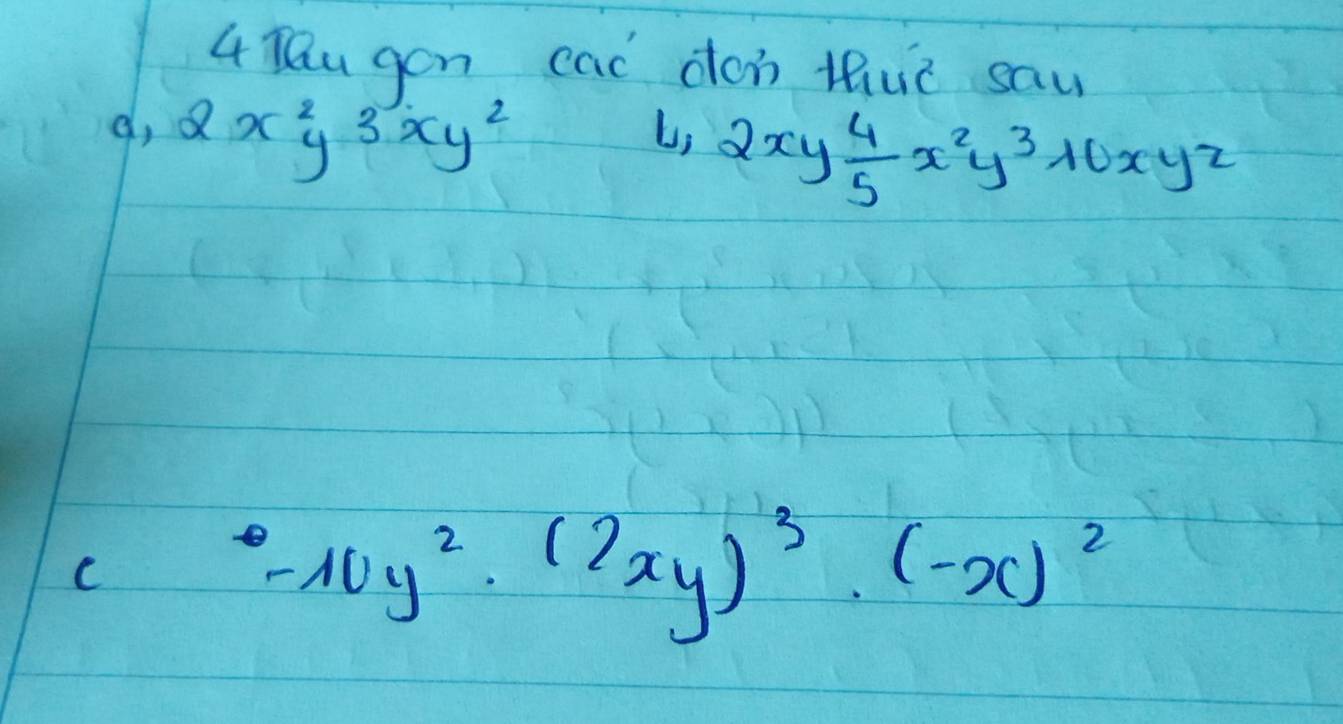 4 Thu gọn các đơn thức sau
a, 2x²y3xy² b, 2xy 4/5 x²y³10xyz
c -10y² . (2xy)³ . (-x)²